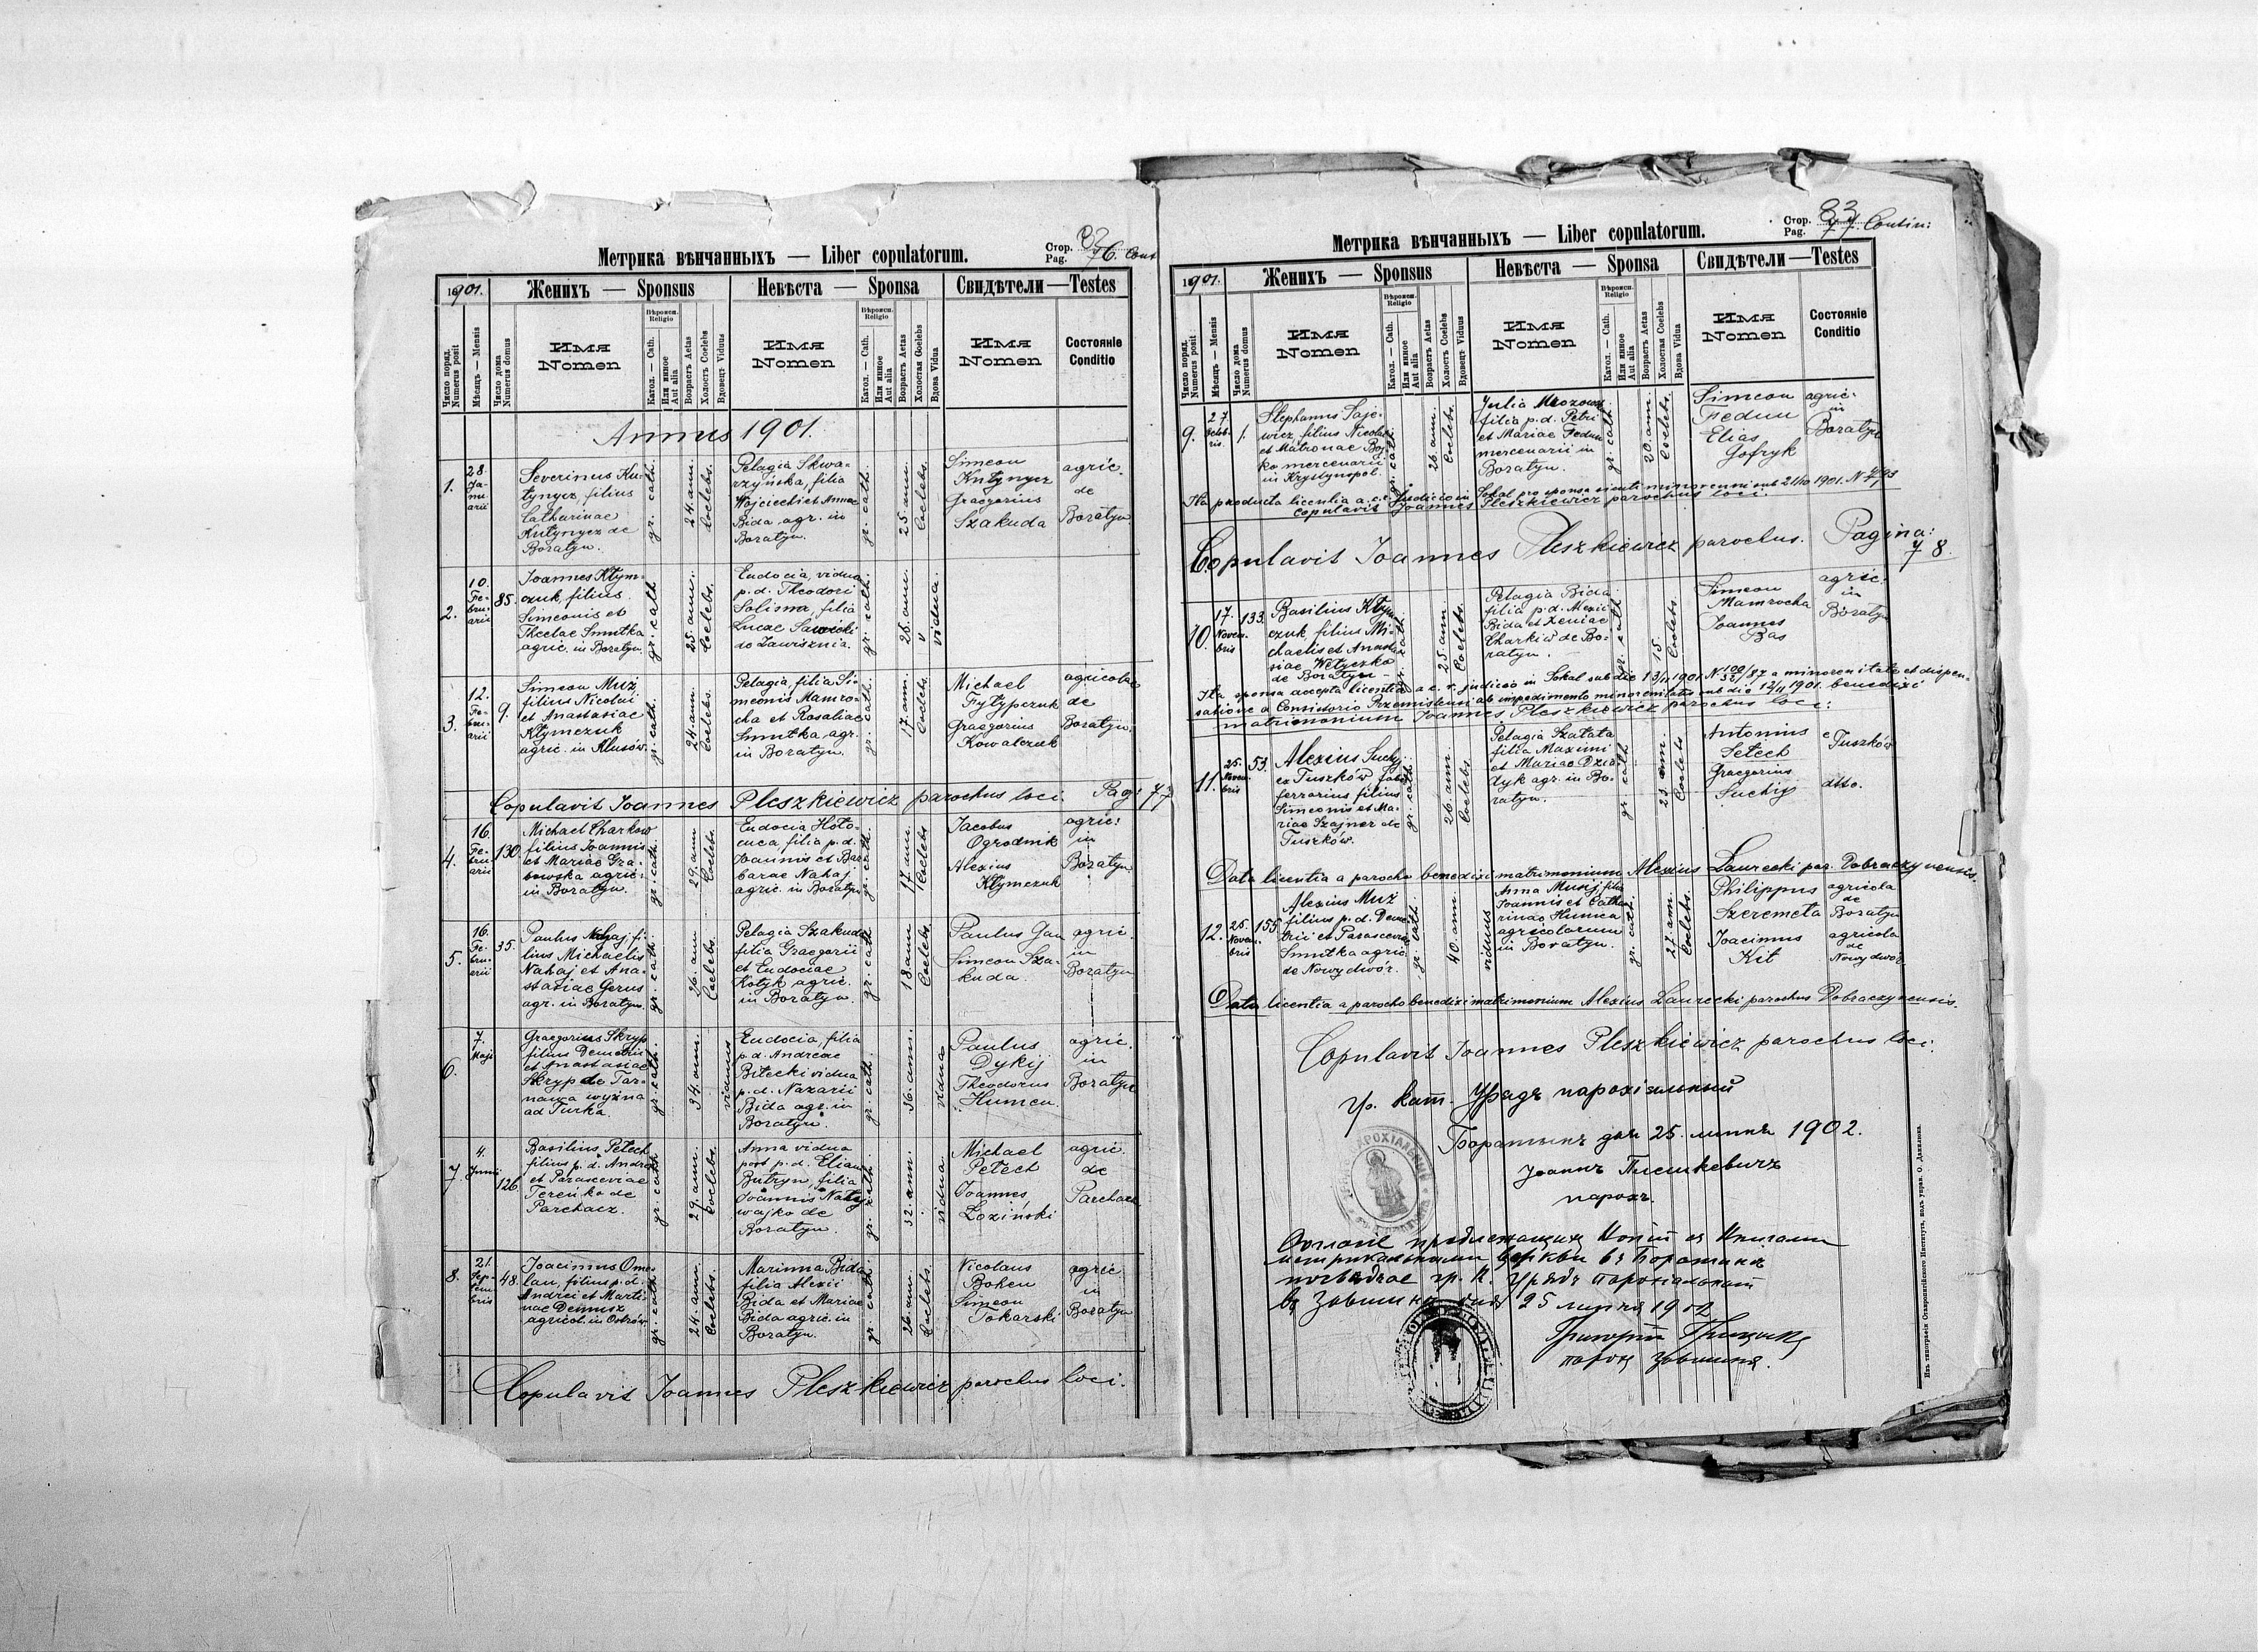 Метрика вѣнчанныхъ — Liber copulatorum.
Стор.
Pag. 76. Cont
1901.
Женихъ — Sponsus
Невѣста — Sponsa
Свидѣтели — Testes
Число поряд.
Numerus posit
Мѣсяцъ — Mensis
Число дома
Numerus domus
Имя
Nomen
Вѣроисп.
Religio
Катол. — Cath.
Или иное
Aut alia
Возрастъ Aetas
Холостъ Coelebs
Вдовецъ Viduus
Имя
Nomen
Вѣроисп.
Religio
Катол. — Cath.
Или иное
Aut alia
Возрастъ Aetas
Холостая Coelebs
Вдова Vidua
Имя
Nomen
Состояніе
Conditio
Annus 1901.
1.
28.
Ja-
nu-
arii
Severinus Ku-
tynycz, filius
Catharinae
Kutynycz de
Boratyn.
gr. cath.
24. ann.
Coelebs.
Pelagia Skwa-
rzyńska, filia
Wojciechi et Annae
Bida agr. in
Boratyn.
gr. cath.
25. ann.
Coelebs.
Simeon
Kutynycz
Graegorius
Szakuda
agric.
de
Boratyn
2.
10.
Fe-
bru-
arii
85.
Joannes Kłym-
czuk, filius
Simeonis et
Theclae Smutka
agric. in Boratyn.
gr. cath
25. ann.
Coelebs.
Eudocia, vidua
p.d. Theodori
Solisma, filia
Lucae Sawicki
de Zawisznia.
gr. cath.
28. ann.
vidua.
3.
12.
Fe-
bru-
arii
9.
Simeon Muz,
filius Nicolai
et Anastasiae
Kłymczuk
agric. in Klusów.
gr. cath.
24. ann.
Coelebs.
Pelagia, filia Si-
meonis Mamro-
cha et Rosaliae
Smutka agr.
in Boratyn.
gr. cath.
17. ann.
Coelebs.
Michael
Fytypczuk
Graegorius
Kowalczuk
agricolae
de
Boratyn.
Copulavit Joannes Pleszkiewicz parochus loci. Pag: 77
4.
16.
Fe-
bru-
arii
130.
Michael Charkow
filius Joannis
et Mariae Gra-
bowska agric.
in Boratyn.
gr. cath.
29. ann
Coelebs.
Eudocia Hoło-
cuca, filia p.d.
Joannis et Bar-
barae Nahaj
agric. in Boratyn
gr. cath.
17. ann.
Coelebs
Jacobus
Ogrodnik
Alexius
Kłymczuk
agric:
in
Boratyn
5.
16.
Fe-
bru-
arii
35.
Paulus Nahaj fi-
lius Michaelis
Nahaj et Ana-
stasiae Gerus
agr. in Boratyn.
gr. cath
26. ann
Coelebs.
Pelagia Szakuda
filia Graegorii
et Eudociae
Kotyk agric.
in Boratyn.
gr. cath
18 ann
Coelebs.
Paulus Gan
Simeon Sza-
kuda.
agric.
in
Boratyn
6.
7.
Maji
Graegorius Skryp
filius Demetrii
et Anastasiae
Skryp de Tar-
nawa wyżna
ad Turka.
gr. cath.
34. ann.
viduus
Eudocia, filia
p.d. Andreae
Bitecki vidua
p.d. Nazarii
Bida agr. in
Boratyn.
gr. cath.
36. ann.
vidua
Paulus
Dykij
Theodorus
Humen.
agric.
in
Boratyn
7.
4.
Junii
126.
Basilius Petech
filius p.d. Andreae
et Parasceviae
Tereńko de
Parchacz.
gr. cath
29. ann.
Coelebs.
Anna vidua
post p.d. Eliam
Butryn, filia
Joannis Naly-
wajko de
Boratyn.
gr. cath.
32. ann.
vidua
Michael
Petech
Joannes
Łoziński
agric.
de
Parchacz
8.
21.
Sep-
tem-
bris
48.
Joacimus Ome-
lan, filius p.d.
Andrei et Marti-
nae Denusz
agricol. in Ostrów.
gr. cath
24. ann.
Coelebs.
Marinna Bida
filia Alexii
Bida et Mariae
Bida agric. in
Boratyn.
gr. cath.
26. ann.
Coelebs.
Nicolaus
Bohen
Simeon
Tokarski
agric
in
Boratyn
Copulavit Joannes Pleszkiewicz parochus loci.
Метрика вѣнчанныхъ — Liber copulatorum.
Стор. 83
Pag. 77. Contin:
1901.
Женихъ — Sponsus
Невѣста — Sponsa
Свидѣтели — Testes
Число поряд.
Numerus posit
Мѣсяцъ — Mensis
Число дома
Numerus domus
Имя
Nomen
Вѣроисп.
Religio
Катол. — Cath.
Или иное
Aut alia
Возрастъ Aetas
Холостъ Coelebs
Вдовецъ Viduus
Имя
Nomen
Вѣроисп.
Religio
Катол. — Cath.
Или иное
Aut alia
Возрастъ Aetas
Холостая Coelebs
Вдова Vidua
Имя
Nomen
Состояніе
Conditio
9.
27
Octob-
ris.
1.
Stephanus Saje-
wicz, filius Nicolai
et Matronae Boj-
ko mercenarii
in Krystynopol.
gr. cath
26. ann.
Coelebs.
Julia Mrozows
filia p.d. Petri
et Mariae Fedun
mercenarii in
Boratyn.
gr. cath
20. ann.
Coelebs.
Simeon
Fedun
Elias
Gofryk
agric:
in
Boratyn
Na producta licentia a c.r. Judicio in Sokal pro sponsa sicuti minorenni sub 21/10 1901. N
copulavit Joannes Pleszkiewicz parochus loci.
Copulavit Joannes Pleszkiewicz parochus. Pagina:
78.
10.
17.
Novem-
bris
133.
Basilius Kłym-
czuk, filius Mi-
chaelis et Anasta-
siae Wełyczko
de Boratyn
gr. cath.
25. ann.
Coelebs.
Pelagia Bida
filia p.d. Alexii
Bida et Xeniae
Charkiw de Bo-
ratyn.
gr. cath
15.
Coelebs.
Simeon
Mamrocha
Joannes
Bas
agric.
in
Boratyn
Na sponsa accepta licentia a c. r. judicio in Sokal sub die 13/11 1901 N a minorenitate et dispen-
satione a Consistorio Przemislensi ab impedimento minorenitatis sub die 12/11 1901. benedixi
matrimonium Joannes Pleszkiewicz parochus loci:
11.
25.
Novem-
bris
53.
Alexius Suchy
ex Tuszków faber
ferrarius filius
Simeonis et Ma-
riae Szajner de
Tuszków.
gr. cath
26. ann.
Coelebs.
Pelagia Szatata
filia Maximi
et Mariae Dzer-
dyk agr. in Bo-
ratyn.
gr. cath
23. ann.
Coelebs
Antonius
Setech
Graegorius
Suchij
e Tuszków
dtto.
Data licentia a parocho benedixi matrimonium Alexius Laurecki par. Dobraczynensis.
12.
25.
Novem-
bris
155.
Alexius Muz
filius p.d. Deme-
trii et Parasceviae
Smutka agric.
de Nowydwór.
gr. cath.
40. ann.
viduus
Anna Musij, filia
Joannis et Catha-
rinae Humen
agricolarum
in Boratyn.
gr. cath.
27. ann.
Coelebs.
Philippus
Szeremeta
Joacimus
Kit
agricola
de
Boratyn
agricola
de
Nowydwór
Data licentia a parocho benedixi matrimonium Alexius Laurecki parochus Dobraczynensis.
Copulavit Joannes Pleszkiewicz parochus loci.
Гр. кат. Урядъ парохіяльный
Боратынъ дня 25. липня 1902.
Іоаннъ Плешкевичъ
парохъ.
метрикальными церкви въ Боратинѣ
гр. к. Урядъ парохіальный
25 липня 1902
Григорій
парох
Изъ типографіи Ставропигійского Института, подъ управ. О. Данилюка.